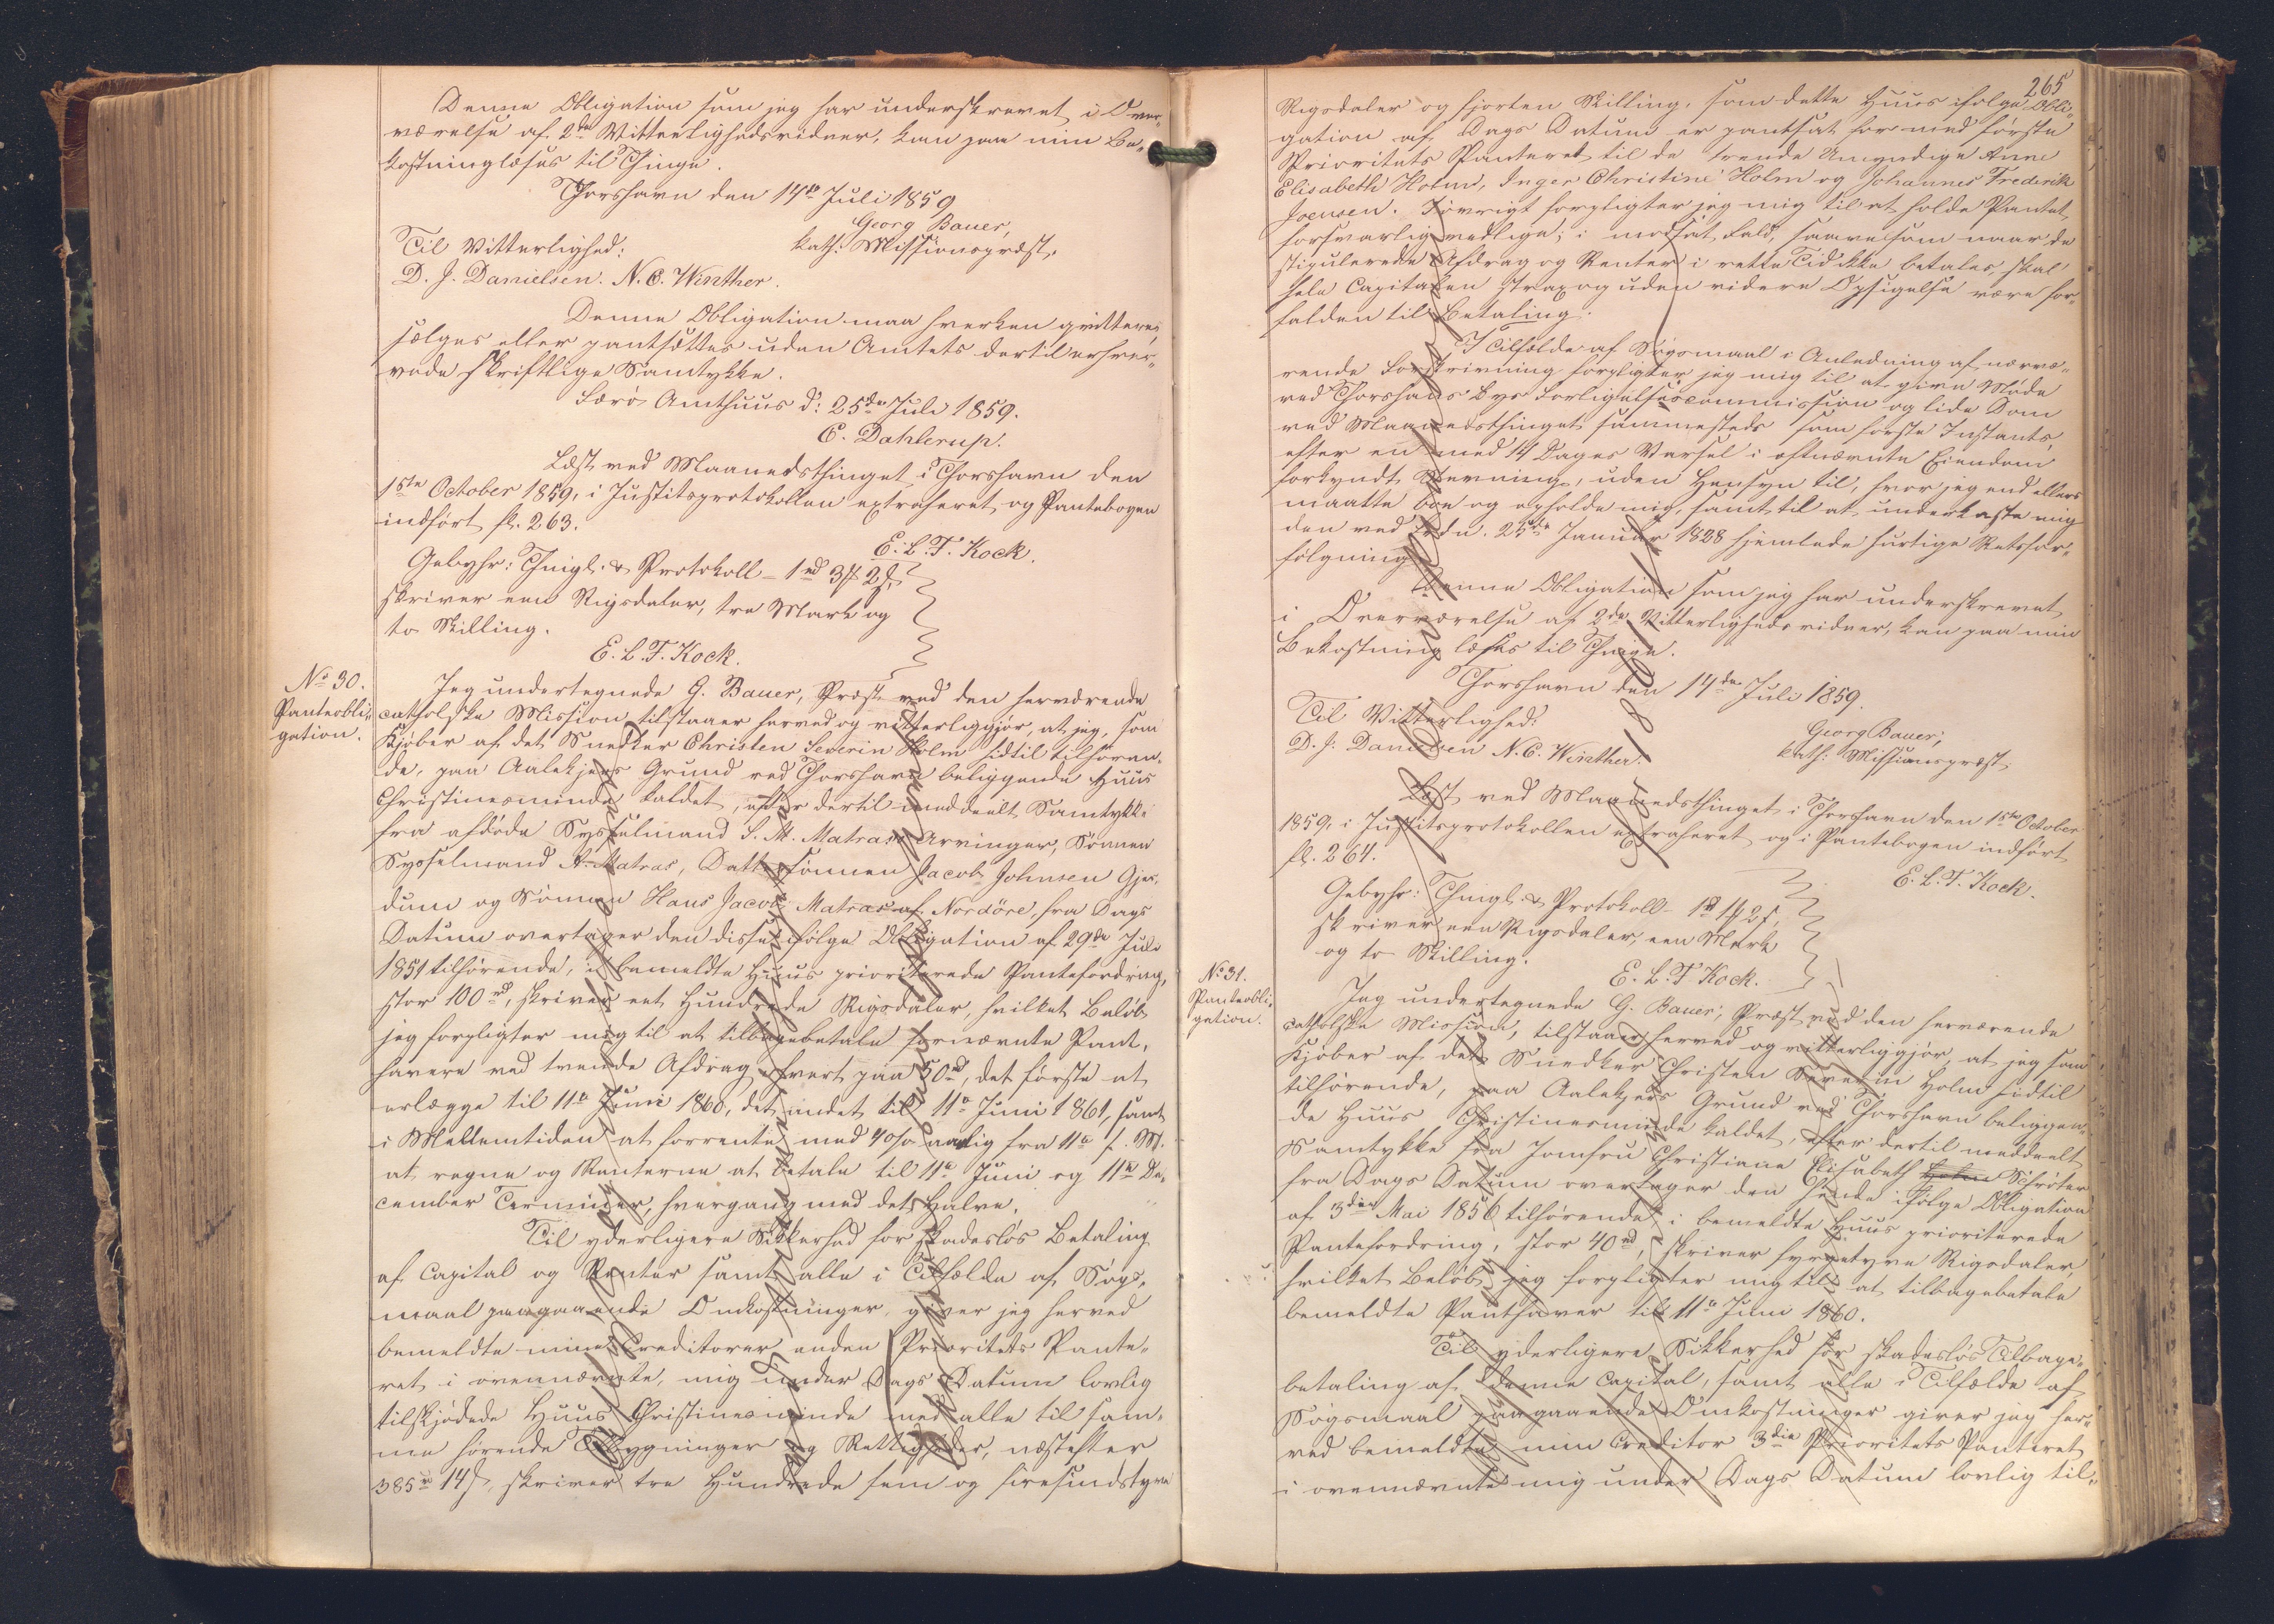 Denne Obligation som jeg har underskrevet i Over-
værelse af 2de Vitterlighedsvidner, kan paa min Be-
kostning læses til Thinge.
Thorshavn den 14de Juli 1859
Georg Bauer,
kath: Missionspræst.
Til Vitterlighed:
D. J. Danielsen. N. C. Winther.
Denne Obligation maa hverken qvitteres,
sælges eller pantsættes uden Amtets dertil erhver-
vede skriftlige Samtykke.
Færö Amthuus d: 25de Juli 1859.
C. Dahlerup.
Læst ved Maanedsthinget i Thorshavn den
1ste October 1859, i Justitsprotokollen extraheret og Pantebogen
indført fl. 263.
E. L. T. Kock.
Gebyhr: Thingl. & Protokoll - 1rd 3 2
skriver een Rigsdaler, tre Mark og
to Skilling.
E. L. T. Kock.
No 30.
Panteobli-
gation.
Jeg undertegnede G. Bauer, Præst ved den herværende
catholske Mission tilstaaer herved og vitterliggjør, at jeg, som
Kjøber af det Snedker Christen Severin Holm hidtil tilhøren-
de, paa Aalekjers Grund ved Thorshavn beliggende Huus
Christinesminde kaldet, efter dertil meddeelt Samtykke
fra afdøde Sysselmand S. M. Matras's Arvinger, Sönnen
Sysselmand A. Matras, Dattersönnen Jacob Johnsen Gjer-
dum og Sönnen Hans Jacob Matras af Nordöre, fra Dags
Datum overtager den disse ifølge Obligation af 29de Juli
1851 tilhørende, i bemeldte Huus prioriterede Pantefordring,
stor 100rd, skriver eet Hundrede Rigsdaler, hvilket Beløb
jeg forpligter mig til at tilbagebetale fornævnte Pant-
havere ved tvende Afdrag hvert paa 50rd, det første at
erlægge til 11te Juni 1860, det andet til 11te Juni 1861, samt
i Mellemtiden at forrente med 4 o/o aarlig fra 11te f. M.
at regne og Renterne at betale til 11te Juni og 11te De-
cember Terminer, hvergang med det Halve.
Til yderligere Sikkerhed for skadesløs Betaling
af Capital og Renter samt alle i Tilfælde af Søgs-
maal paagaaende Omkostninger, giver jeg herved
bemeldte mine Creditorer anden Prioritets Pante-
ret i ovennævnte, mig under Dags Datum lovlig
tilskjødede Huus Christinesminde med alle til sam-
me hørende Bygninger og Rettigheder, næstefter
385rd 14, skriver tre Hundrede fem og firesindstyve
265
Rigsdaler og fjorten Skilling, som dette Huus ifølge Obli-
gation af Dags Datum er pantsat for med første
Prioritets Panteret til de trende Umyndige Anne
Elisabeth Holm, Inger Christine Holm og Johannes Frederik
Joensen. Iøvrigt forpligter jeg mig til at holde Pantet
forsvarlig vedlige; i modsat Fald, saavelsom naar de
stipulerede Afdrag og Renter i rette Tid ikke betales, skal
hele Capitalen strax og uden videre Opsigelse være for-
falden til Betaling.
I Tilfælde af Søgsmaal i Anledning af nærvæ-
rende Forskrivning forpligter jeg mig til at give Møde
ved Thorshavns Byes Forligelsescommission og lide Dom
ved Maanedsthinget sammesteds som første Instants,
efter en med 14 Dages Varsel i oftnævnte Eiendom
forkyndt Stevning, uden Hensyn til, hvor jeg end ellers
maatte boe og opholde mig, samt til at underkaste mig
den ved Frdn. 25de Januar 1828 hjemlede hurtige Retsfor-
følgning.
Denne Obligation som jeg har underskrevet
i Overværelse af 2de Vitterlighedsvidner, kan paa min
Bekostning læses til Thinge.
Thorshavn den 14de Juli 1859.
Georg Bauer,
kath: Missionspræst.
Til Vitterlighed:
D. J. Danielsen N. C. Winther.
Læst ved Maanedsthinget i Thorshavn den 1ste October
1859, i Justitsprotokollen extraheret og i Pantebogen indført
fl. 264.
E. L. T. Kock.
Gebyhr: Thingl. & Protokoll - 1rd 1 2
skriver een Rigsdaler, een Mark
og to Skilling.
E. L. T Kock.
No 31.
Panteobli-
gation.
Jeg undertegnede G. Bauer, Præst ved den herværende
catholske Mission, tilstaaer herved og vitterliggjør, at jeg som
Kjøber af det Snedker Christen Severin Holm hidtil
tilhørende, paa Aalekjers Grund ved Thorshavn beliggen-
de Huus Christinesminde kaldet, efter dertil meddeelt
Samtykke fra Jomfru Christiane Elisabeth Holm Schröter
fra Dags Datum overtager den hende ifølge Obligation
af 3die Mai 1856 tilhørende, i bemeldte Huus prioriterede
Pantefordring, stor 40rd, skriver fyrretyve Rigsdaler
hvilket Beløb jeg forpligter mig til at tilbagebetale
bemeldte Panthaver til 11te Juni 1860.
Til yderligere Sikkerhed for skadesløs Tilbage-
betaling af denne Capital, samt alle i Tilfælde af
Søgsmaal paagaaende Omkostninger giver jeg her-
ved bemeldte min Creditor 3die Prioritets Panteret
i ovennævnte mig under Dags Datum lovlig til-